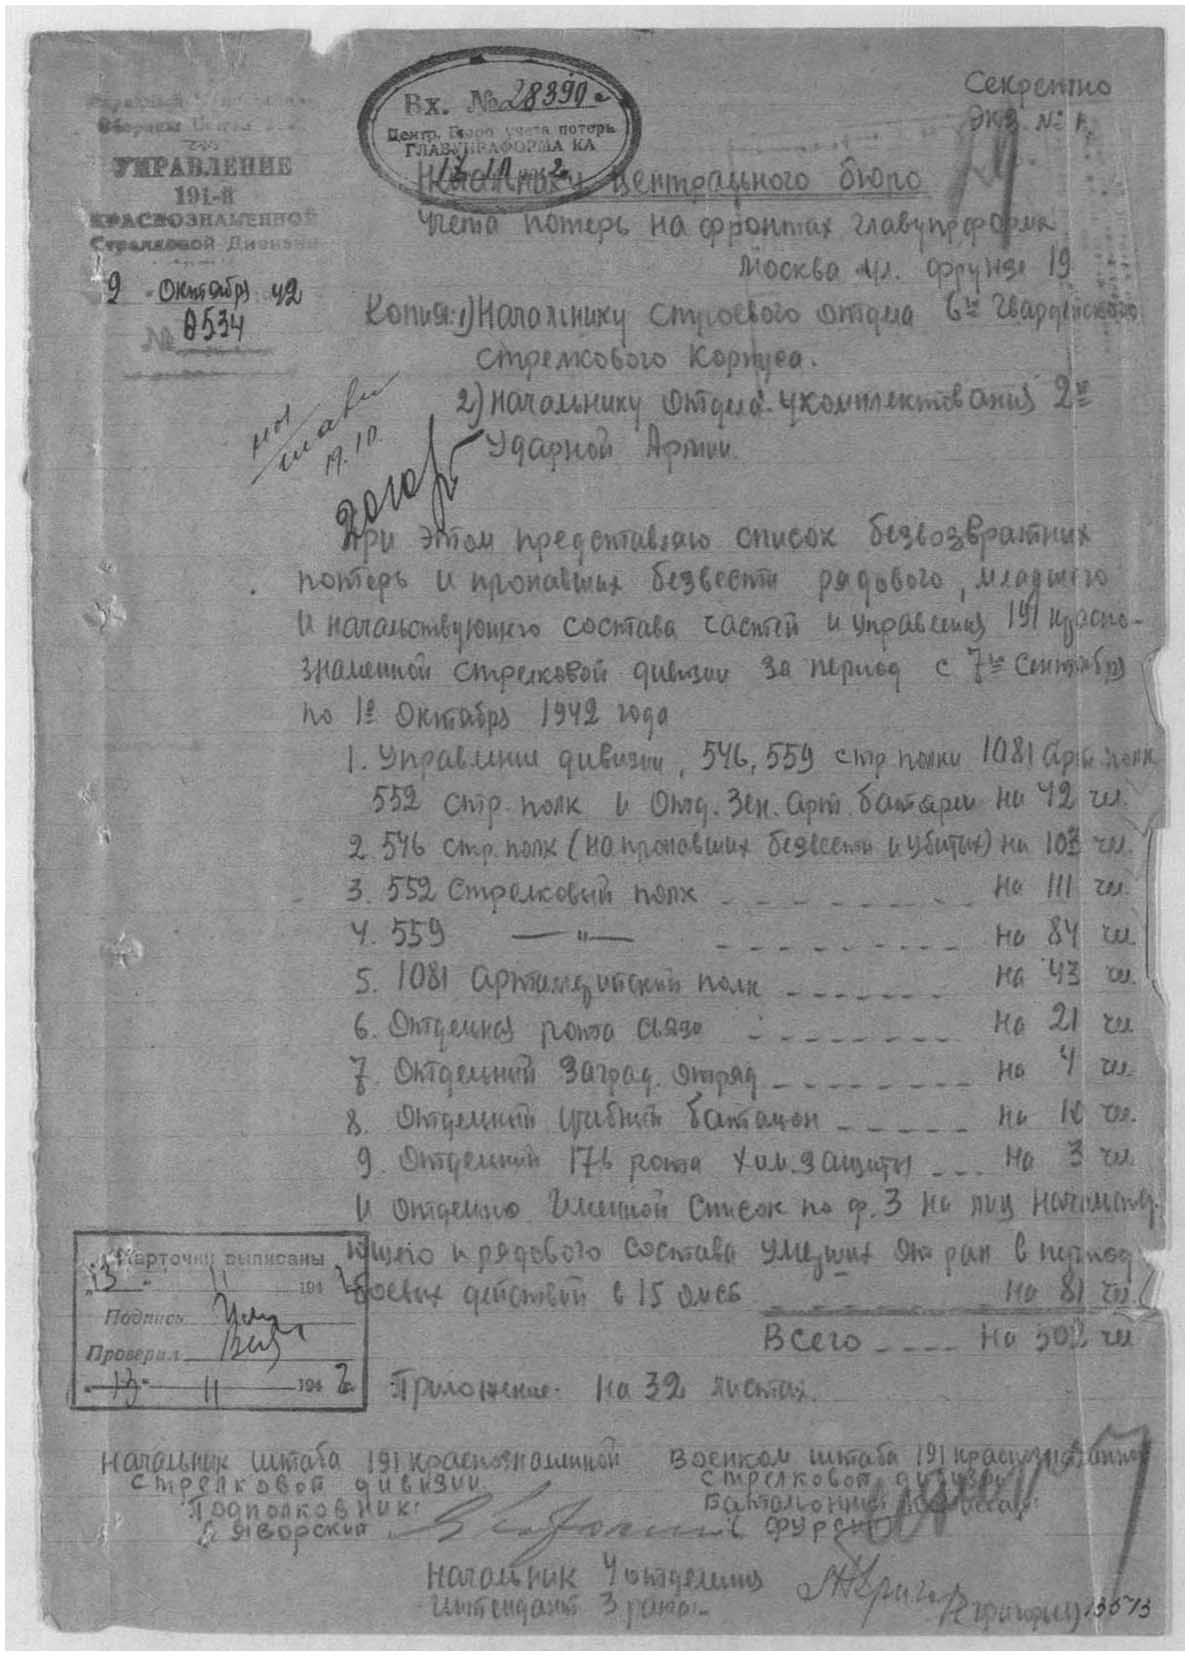 Секретно
Экз. № 1.
Вх. № 28390
Центр. Бюро учета потерь
ГЛАВУПРАФОРМА КА
УПРАВЛЕНИЕ
191-й
КРАСНОЗНАМЕННОЙ
Стрелковой Дивизии
9 Октября 42
№ 0534
Начальнику центрального бюро
учета потерь на фронтах главупраформа
Москва ул. Фрунзе 19
Копия: 1) Начальнику строевого отдела 6го гвардейского
стрелкового корпуса.
2) Начальнику отдела укомплектования 2й
Ударной Армии.
19.10.
При этом представляю список безвозвратных
потерь и пропавших безвести рядового, младшего
и начальствующего состава частей и управления 191 красно-
знаменной стрелковой дивизии за период с 7го сентября
по 1е октября 1942 года
1. Управление дивизии, 546, 559 стр. полки 1081 арт. полк
552 стр. полк и Отд. Зен. Арт. батареи на 42 чел.
2. 546 стр. полк (на пропавших безвести и убитых) на 103 чел.
3. 552 Стрелковый полк на 111 чел.
4. 559 —"— на 84 чел.
5. 1081 Артиллерийский полк на 43 чел.
6. Отдельная рота связи на 21 чел.
7. Отдельный Заград. отряд на 4 чел.
8. Отдельный учебный батальон на 10 чел.
9. Отдельная 176 рота хим. защиты на 3 чел.
и отдельно Именной список по ф. 3 на лиц начальству-
ющего и рядового состава умерших от ран в период
боевых действий в 15 омсб на 81 чел.
Всего на 502 чел
Приложение: на 32 листах.
Карточки выписаны
13 11 194 2
Подпись
Проверил
13 11 194 2
Начальник штаба 191 краснознаменной
стрелковой дивизии
Подполковник:
Яворский
Военком штаба 191 краснознаменной
стрелковой дивизии
Батальонный комиссар:
Начальник 4 отделения
Интендант 3 ранга
13573